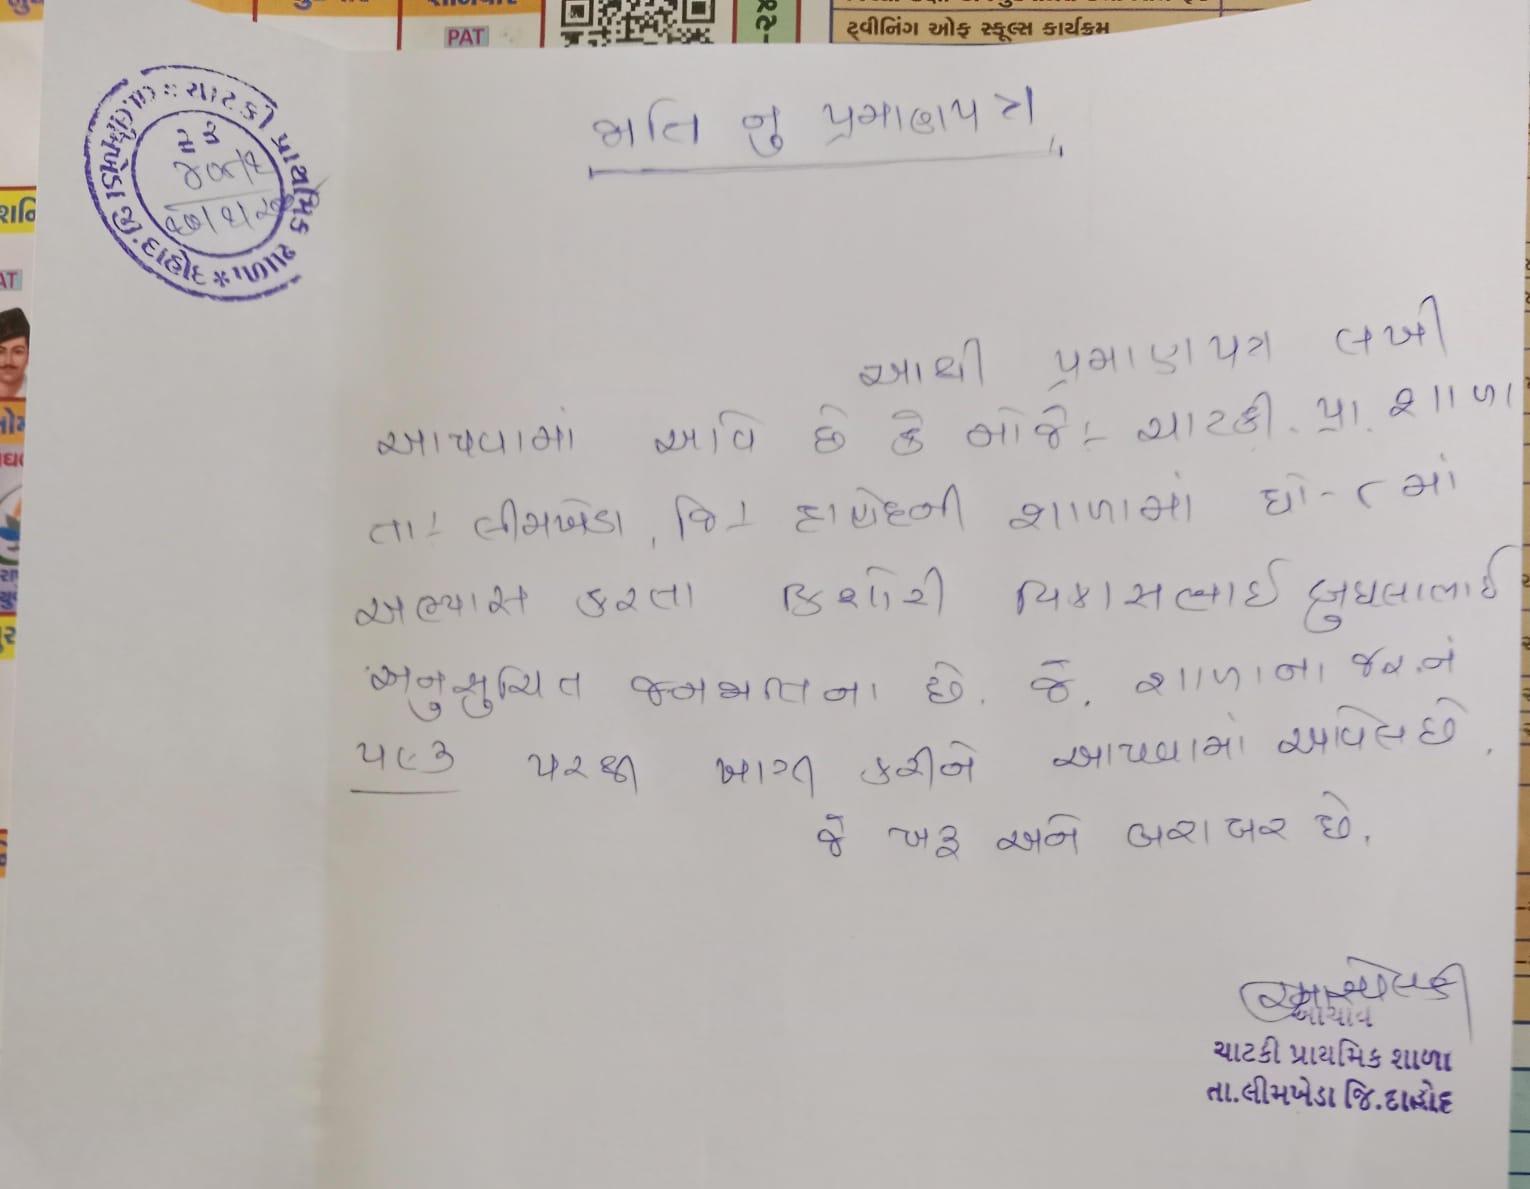 PAT
ટ્વીનિંગ ઓફ સ્કૂલ્સ કાર્યક્રમ
ચાટકી પ્રાથમિક શાળા * તા.લીમખેડા જિ.દાહોદ
જાતિ નુ પ્રમાણપત્ર
આથી પ્રમાણપત્ર લખી
આપવામાં આવિ છે કે મોજે:- ચાટકી. પ્રા. શાળા
તા:- લીમખેડા, જિ:- દાહોદની શાળામાં ધો-૮માં
અભ્યાસ કરતા કિશોરી વિકાસભાઈ બુધલાભાઈ
અનુસુચિત જનજાતિના છે. જે. શાળાના જ.ર.નં
૫૯૩ પરથી ખાત્રી કરીને આપવામાં આવેલ છે.
જે ખરૂ અને બરાબર છે.
આચાર્ય
ચાટકી પ્રાથમિક શાળા
તા.લીમખેડા જિ.દાહોદ